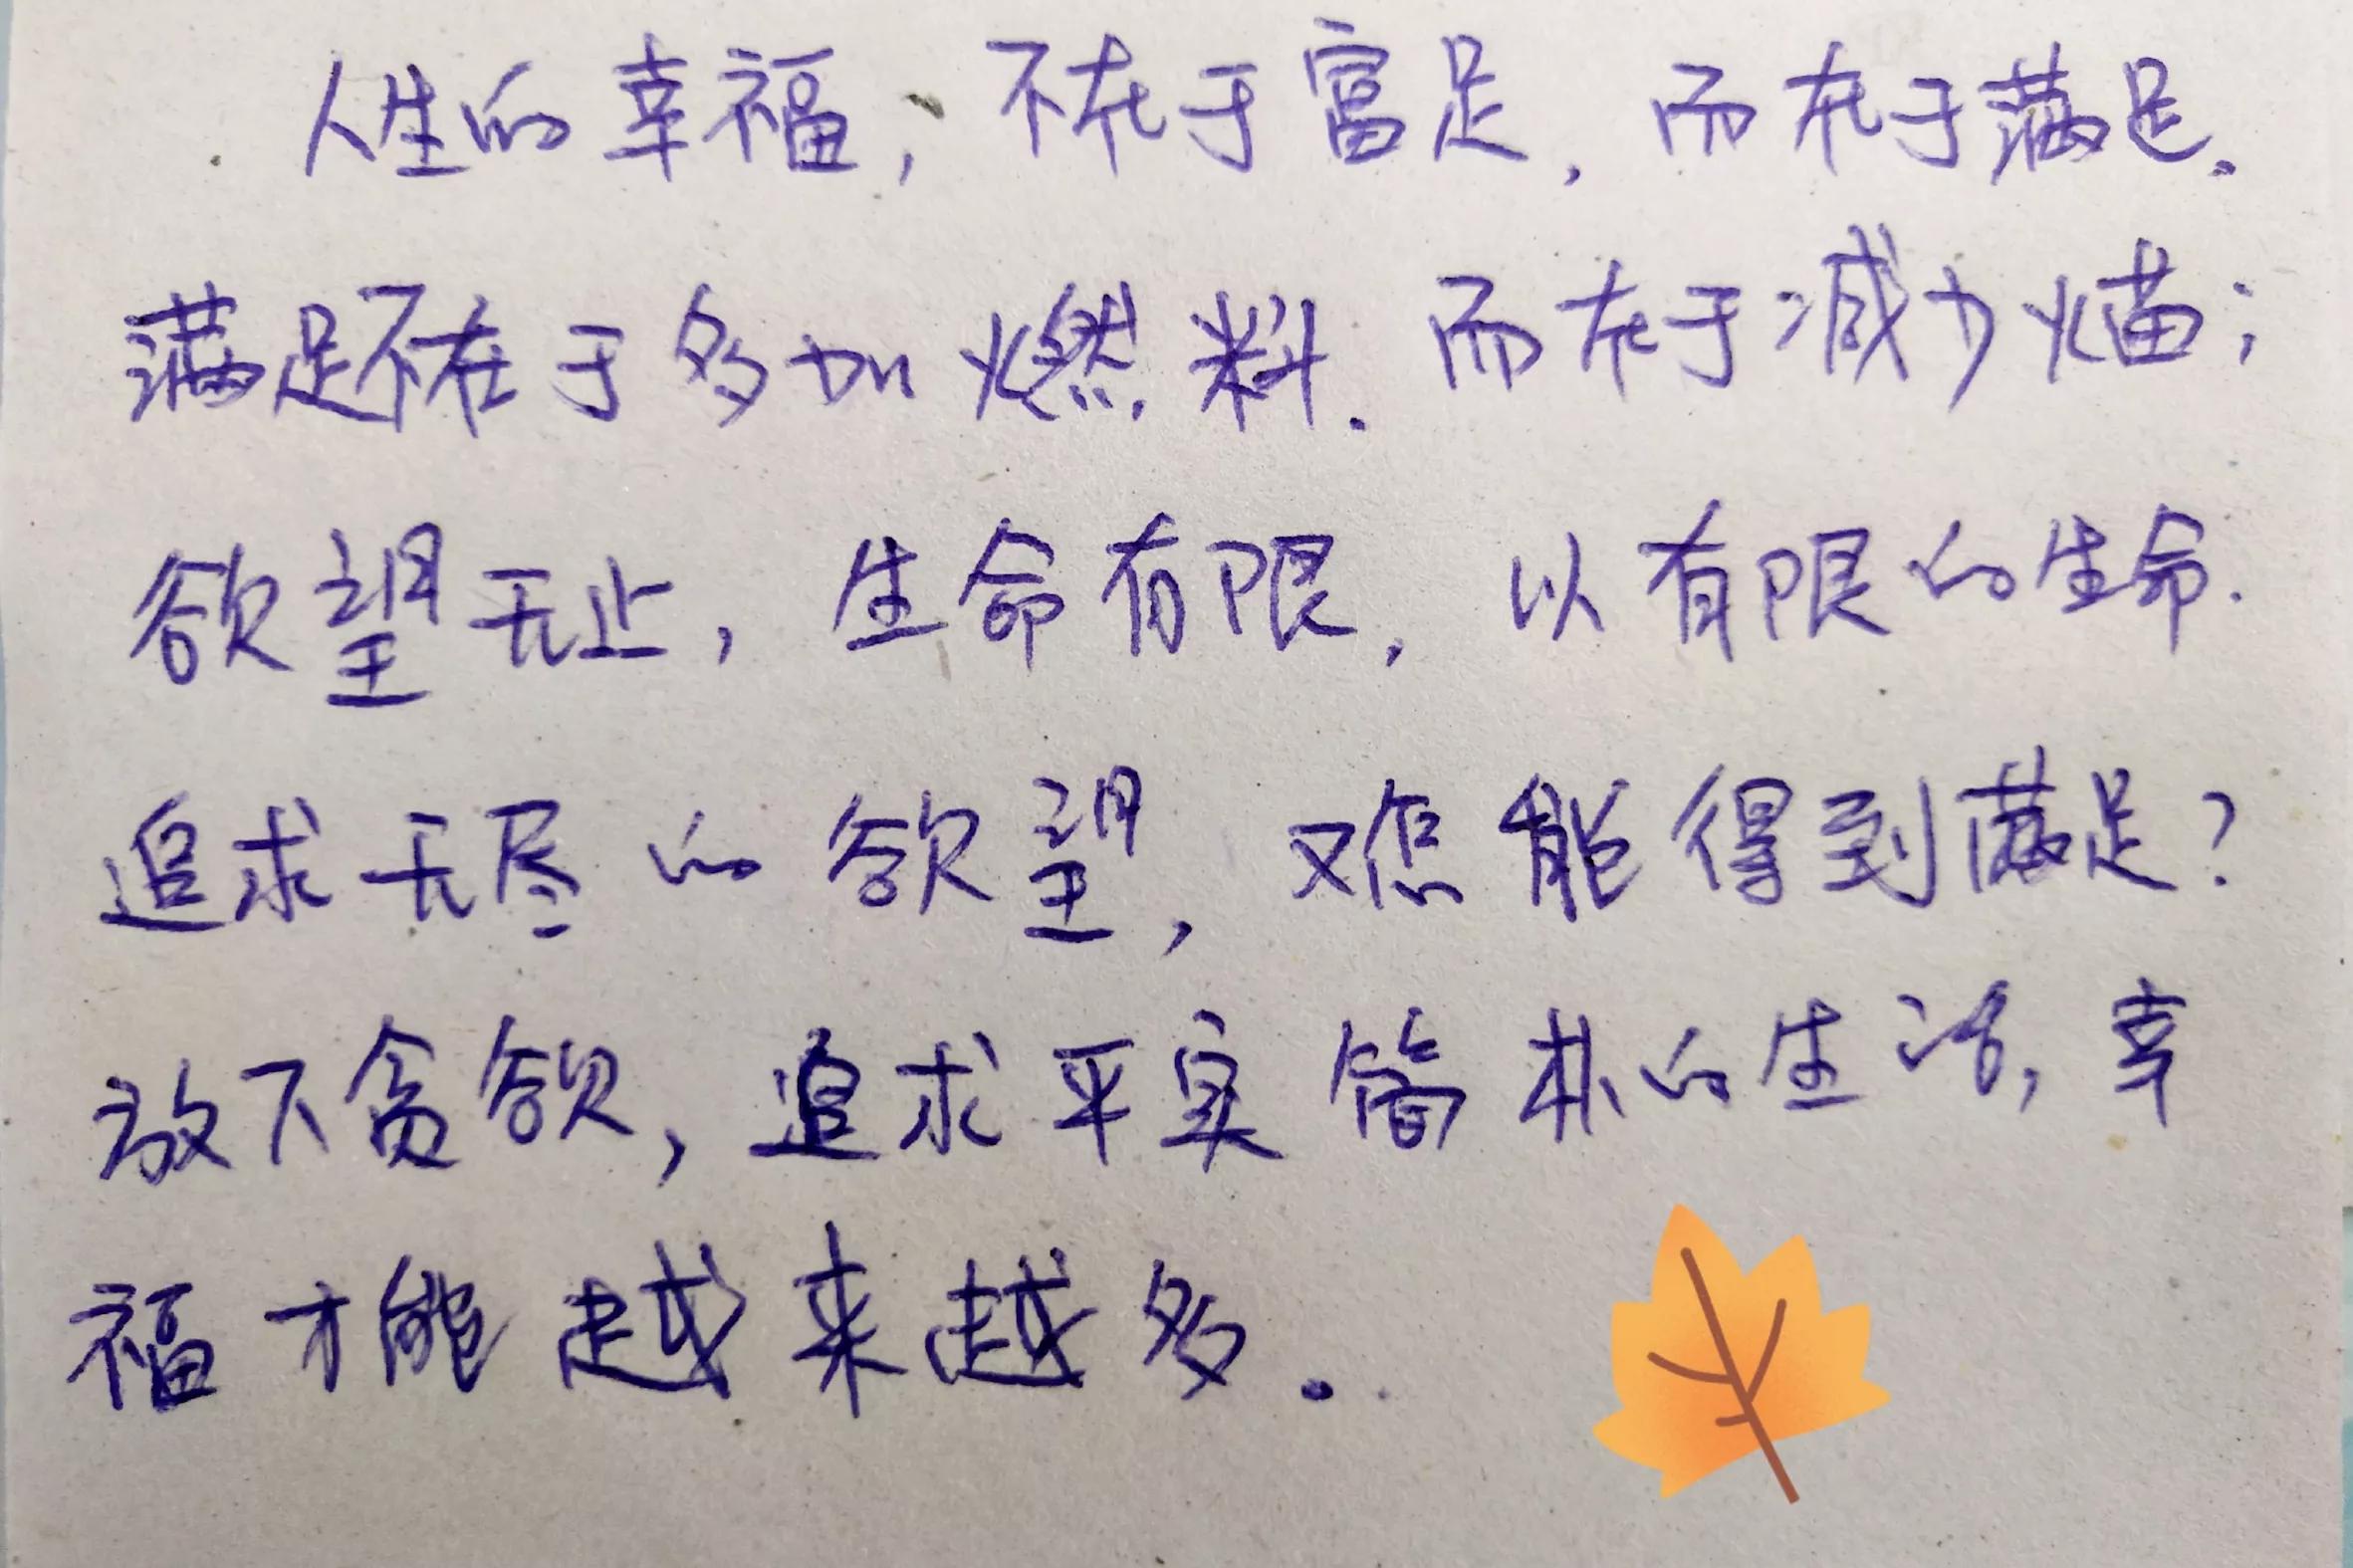 人生的幸福，不在于富足，而在于满足.
满足不在于多加燃料.而在于减少火苗；
欲望无止，生命有限，以有限的生命.
追求无尽的欲望，又怎能得到满足？
放下贪欲，追求平实简朴的生活，幸
福才能越来越多.